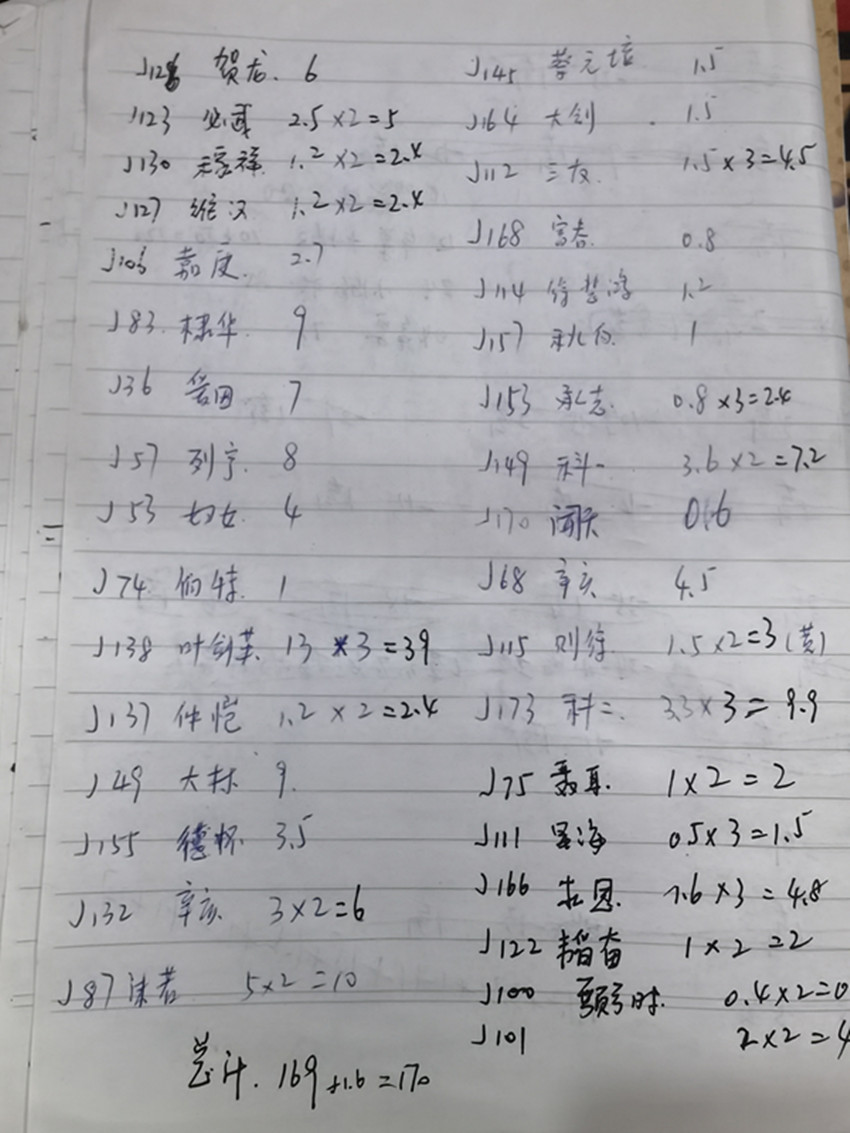 J126 贺龙. 6
J123 必武 2.5×2=5
J130 天祥 1.2×2=2.4
J127 维汉 1.2×2=2.4
J106 嘉庚. 2.7
J83. 棣华. 9
J36 爱因 7
J57 列宁. 8
J53 妇女. 4
J74. 伯特. 1
J138 叶剑英. 13×3=39
J137 仲恺 1.2×2=2.4
J49 大林 9.
J155 德怀 3.5
J132 辛亥. 3×2=6
J87 沫若 5×2=10
总计. 169+1.6=170
J145 蔡元培 1.5
J164 大钊 1.5
J112 三友. 1.5×3=4.5
J168 富春. 0.8
J114 徐悲鸿 1.2
J157 秋白. 1
J153 承志. 0.8×3=2.4
J149 科一 3.6×2=7.2
J170 闻天 0.6
J68 辛亥 4.5
J115 则徐. 1.5×2=3(黄)
J173 科二. 3.3×3=9.9
J75 聂耳. 1×2=2
J111 星海 0.5×3=1.5
J166 恩 1.6×3=4.8
J122 韬奋 1×2=2
J100 时. 0.4×2=0
J101 2×2=4